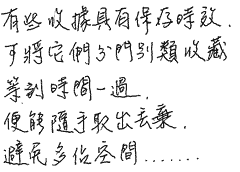 有些收據具有保存時效.
可將它們分門別類收藏
等到時間一過.
便能隨手取出丟棄.
避免多佔空間.......